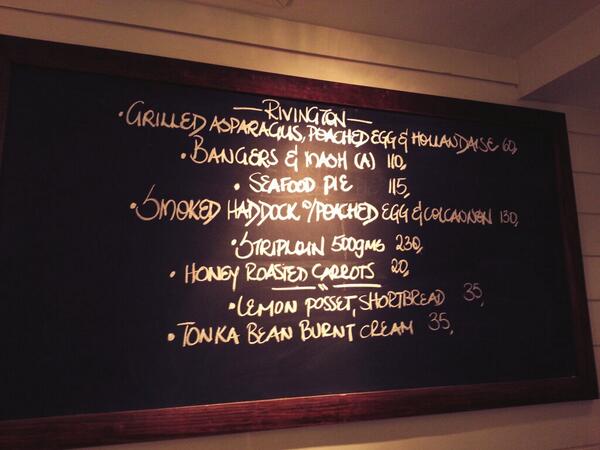 — RIVINGTON —
• GRILLED ASPARAGUS, POACHED EGG & HOLLANDAISE 60,
• BANGERS & MASH (A) 110,
• SEAFOOD PIE 115,
• SMOKED HADDOCK w/POACHED EGG & COLCANNON 130,
• STRIPLOIN 500gms 230,
• HONEY ROASTED CARROTS 20,
• LEMON POSSET, SHORTBREAD 35,
• TONKA BEAN BURNT CREAM 35,